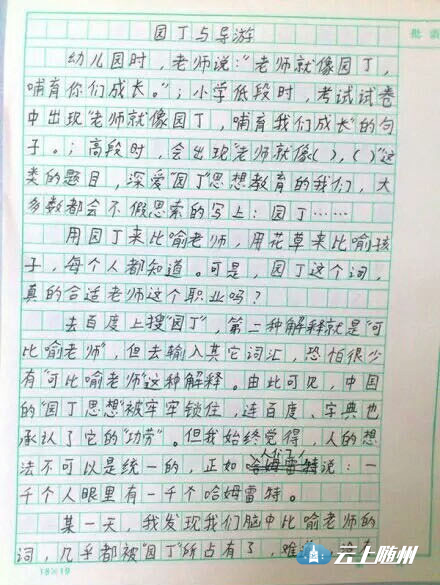 园丁与导游
批语
幼儿园时，老师说："老师就像园丁，
哺育你们成长。"；小学低段时，考试试卷
中出现"老师就像园丁，哺育我们成长"的句
子。；高段时，会出现"老师就像( )，( )"这
类的题目，深爱"园丁"思想教育的我们，大
多数都会不假思索的写上：园丁……
用园丁来比喻老师，用花草来比喻孩
子，每个人都知道。可是，园丁这个词，
真的合适老师这个职业吗？
去百度上搜"园丁"，第二种解释就是"可
比喻老师"，但去输入其它词汇，恐怕很少
有"可比喻老师"这种解释。由此可见，中国
的"园丁思想"被牢牢锁住，连百度、字典也
承认了它的"功劳"。但我始终觉得，人的想
法不可以是统一的，正如哈姆雷特说：一
千个人眼里有一千个哈姆雷特。
某一天，我发现我们脑中比喻老师的
词，几乎都被"园丁"所占有了，难
云上随州
18×19